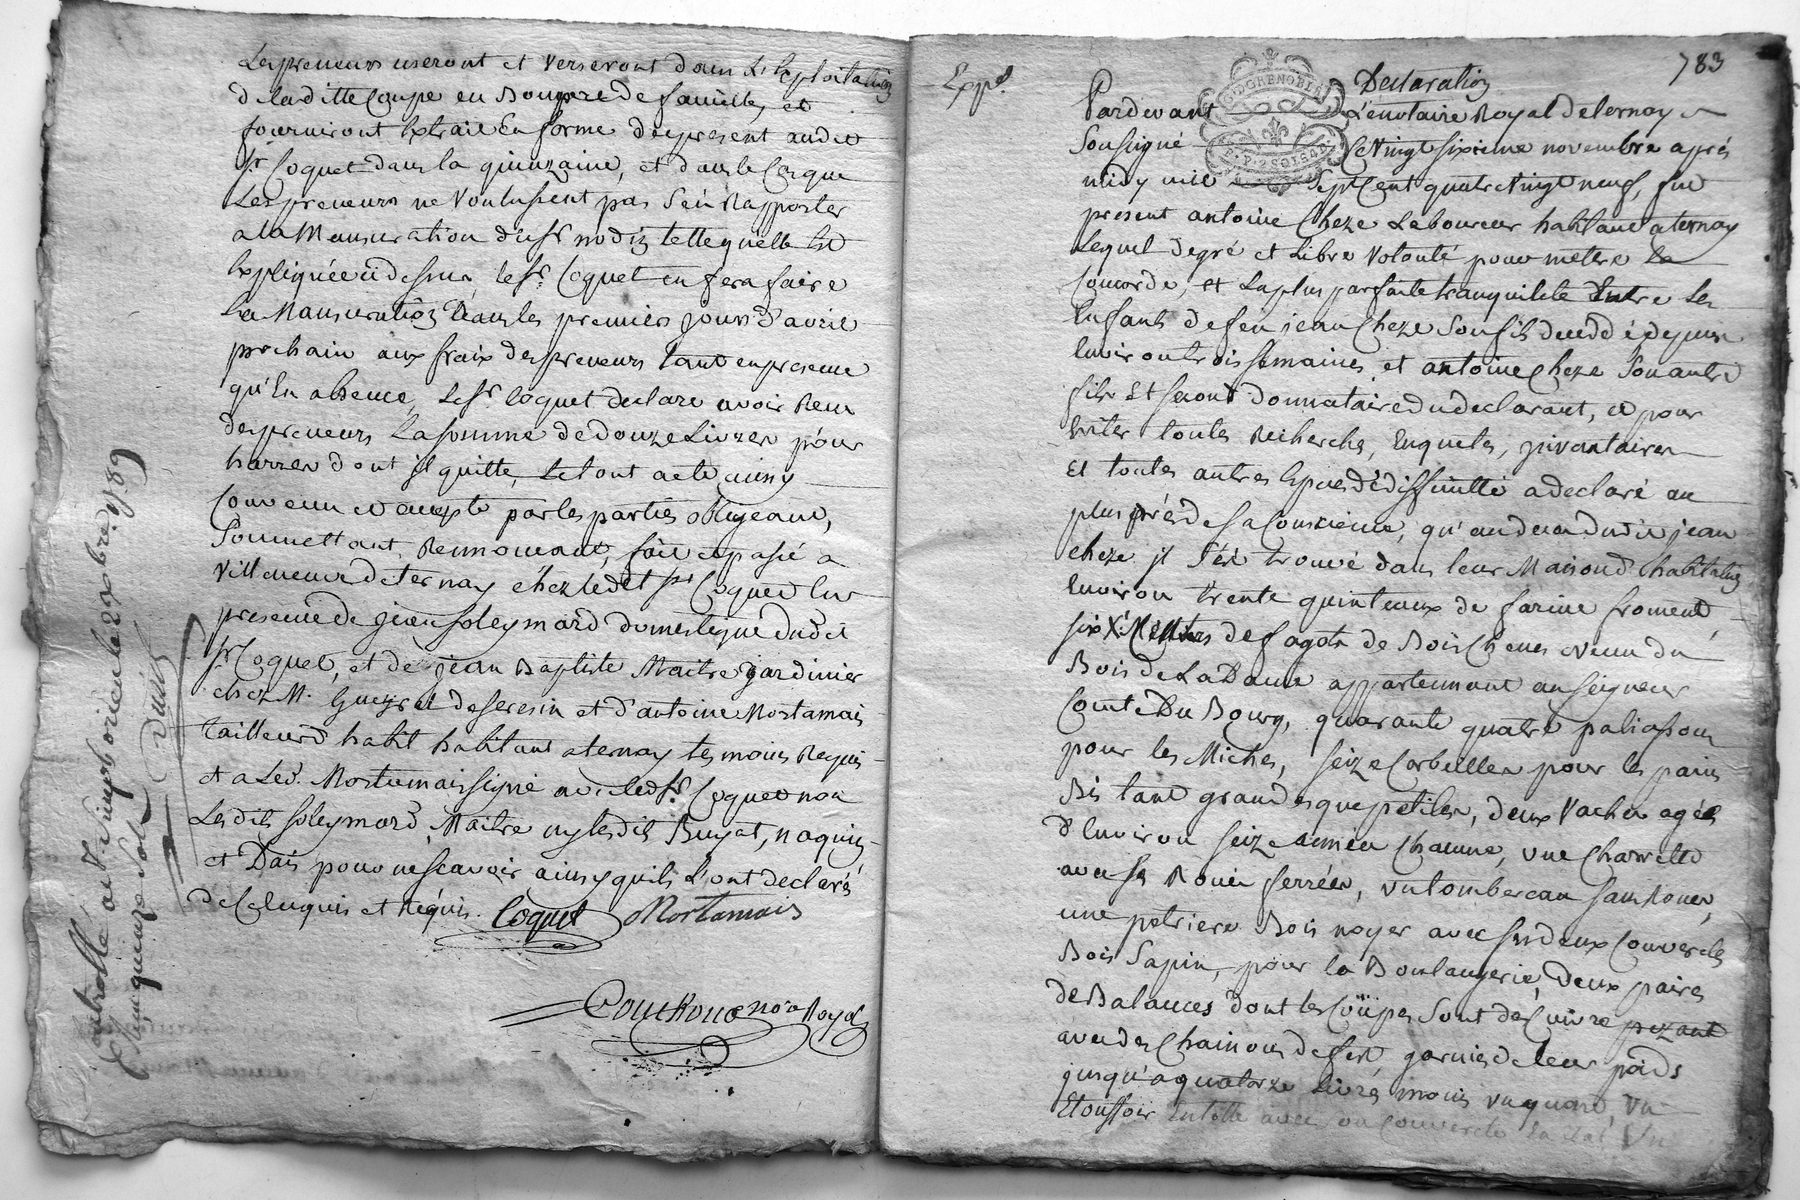 Les preneurs useront et verseront dans L'Exploitation
de laditte Coupe en Bon pere de famille, et
fourniront Extrait En forme des present audit
Sr. Coquet dans la quinzaine, et dans le Cas que
Les preneurs ne Voulussent pas S'en Rapporter
a la Mensuration dusr nodiz telle qu'elle Est
Expliquée ci dessus, le Sr. Coquet en fera faire
La Mansuration Dans les premiers Jours d'avril
prochain aux fraix des preneurs tant en presence
qu'En absence, Le Sr. Coquet declare avoir Reçu
des preneurs La somme de douze Livres pour
harres dont il quitte, Le tout a eté ainsy
Convenu et accepté par les parties obligeant,
Soumettant, Rennonçant, fait et passé a
Villeneuve de ternay chez ledit Sr Coquet En
presence de jean Soleymard domestique dudit
Sr Coquet, et de jean Baptiste Maitre jardinier
chez M. de Seresin et d'antoine Mortamais
tailleur d'habit habitant a ternay temoins Requis
et a Led. Mortamais signé avec led Sr. Coquet non
Lesdits Soleymard, Maitre ny lesdits Buyat, naquis
et Dais pour ne scavoir ainsy qu'ils L'ont declarés
de Ce Enquis et Requis. Coquet Mortamais
not Royal
Controllé a St Simphorien le 29 9bre 1789
Reçu quinze Sols
783
Expé.
Declaration
G. D GRENOBLE
Pardevant Le notaire Royal de ternay
Soussigné Ce Vingt sixieme novembre après
midy mil Sept Cent quatre Vingt neuf, fut
present antoine Cheze Laboureur habitant a ternay
Lequel de gré et Libre Volonté pour mettre la
Concorde, et La plus parfaite tranquilité Entre Les
Enfants de feu jean Cheze Son fils decedé depuis
Environ trois Semaines et antoine Cheze Son autre
fils Et Second donnataire du declarant, et pour
Eviter toutes Recherches, Enquetes, jnvantaires
Et toutes autres Espices de difficulté a declaré au
plus près de Sa Conscience, qu'au deces dudit jean
cheze il S'est trouvé dans leur Maison d'habitation
Environ trente quinteaux de farine froment,
six Milliers de fagots de Bois Chenes venu du
Bois de La Dame appartennant au Seigneur
Comte Du Bourg, quarante quatre paliassons
pour les Miches, seize Corbeilles pour les pains
Bis tant grandes que petites, deux Vaches agées
d'Environ Seize années Chacune, une Charrette
avec ses Roues ferrées, un tombereau sans Roues,
une petriere Bois noyer avec ses deux Couvercles
Bois Sapin, pour la Boulangerie, deux paires
de Balances dont les Coupes Sont de Cuivre pezant
avec des Chainons de fer garnies de leur poids
jusqu'a quatorze Livres moins un quart, Un
Etouffoir En tolle avec son Couvercle En Etat, Un